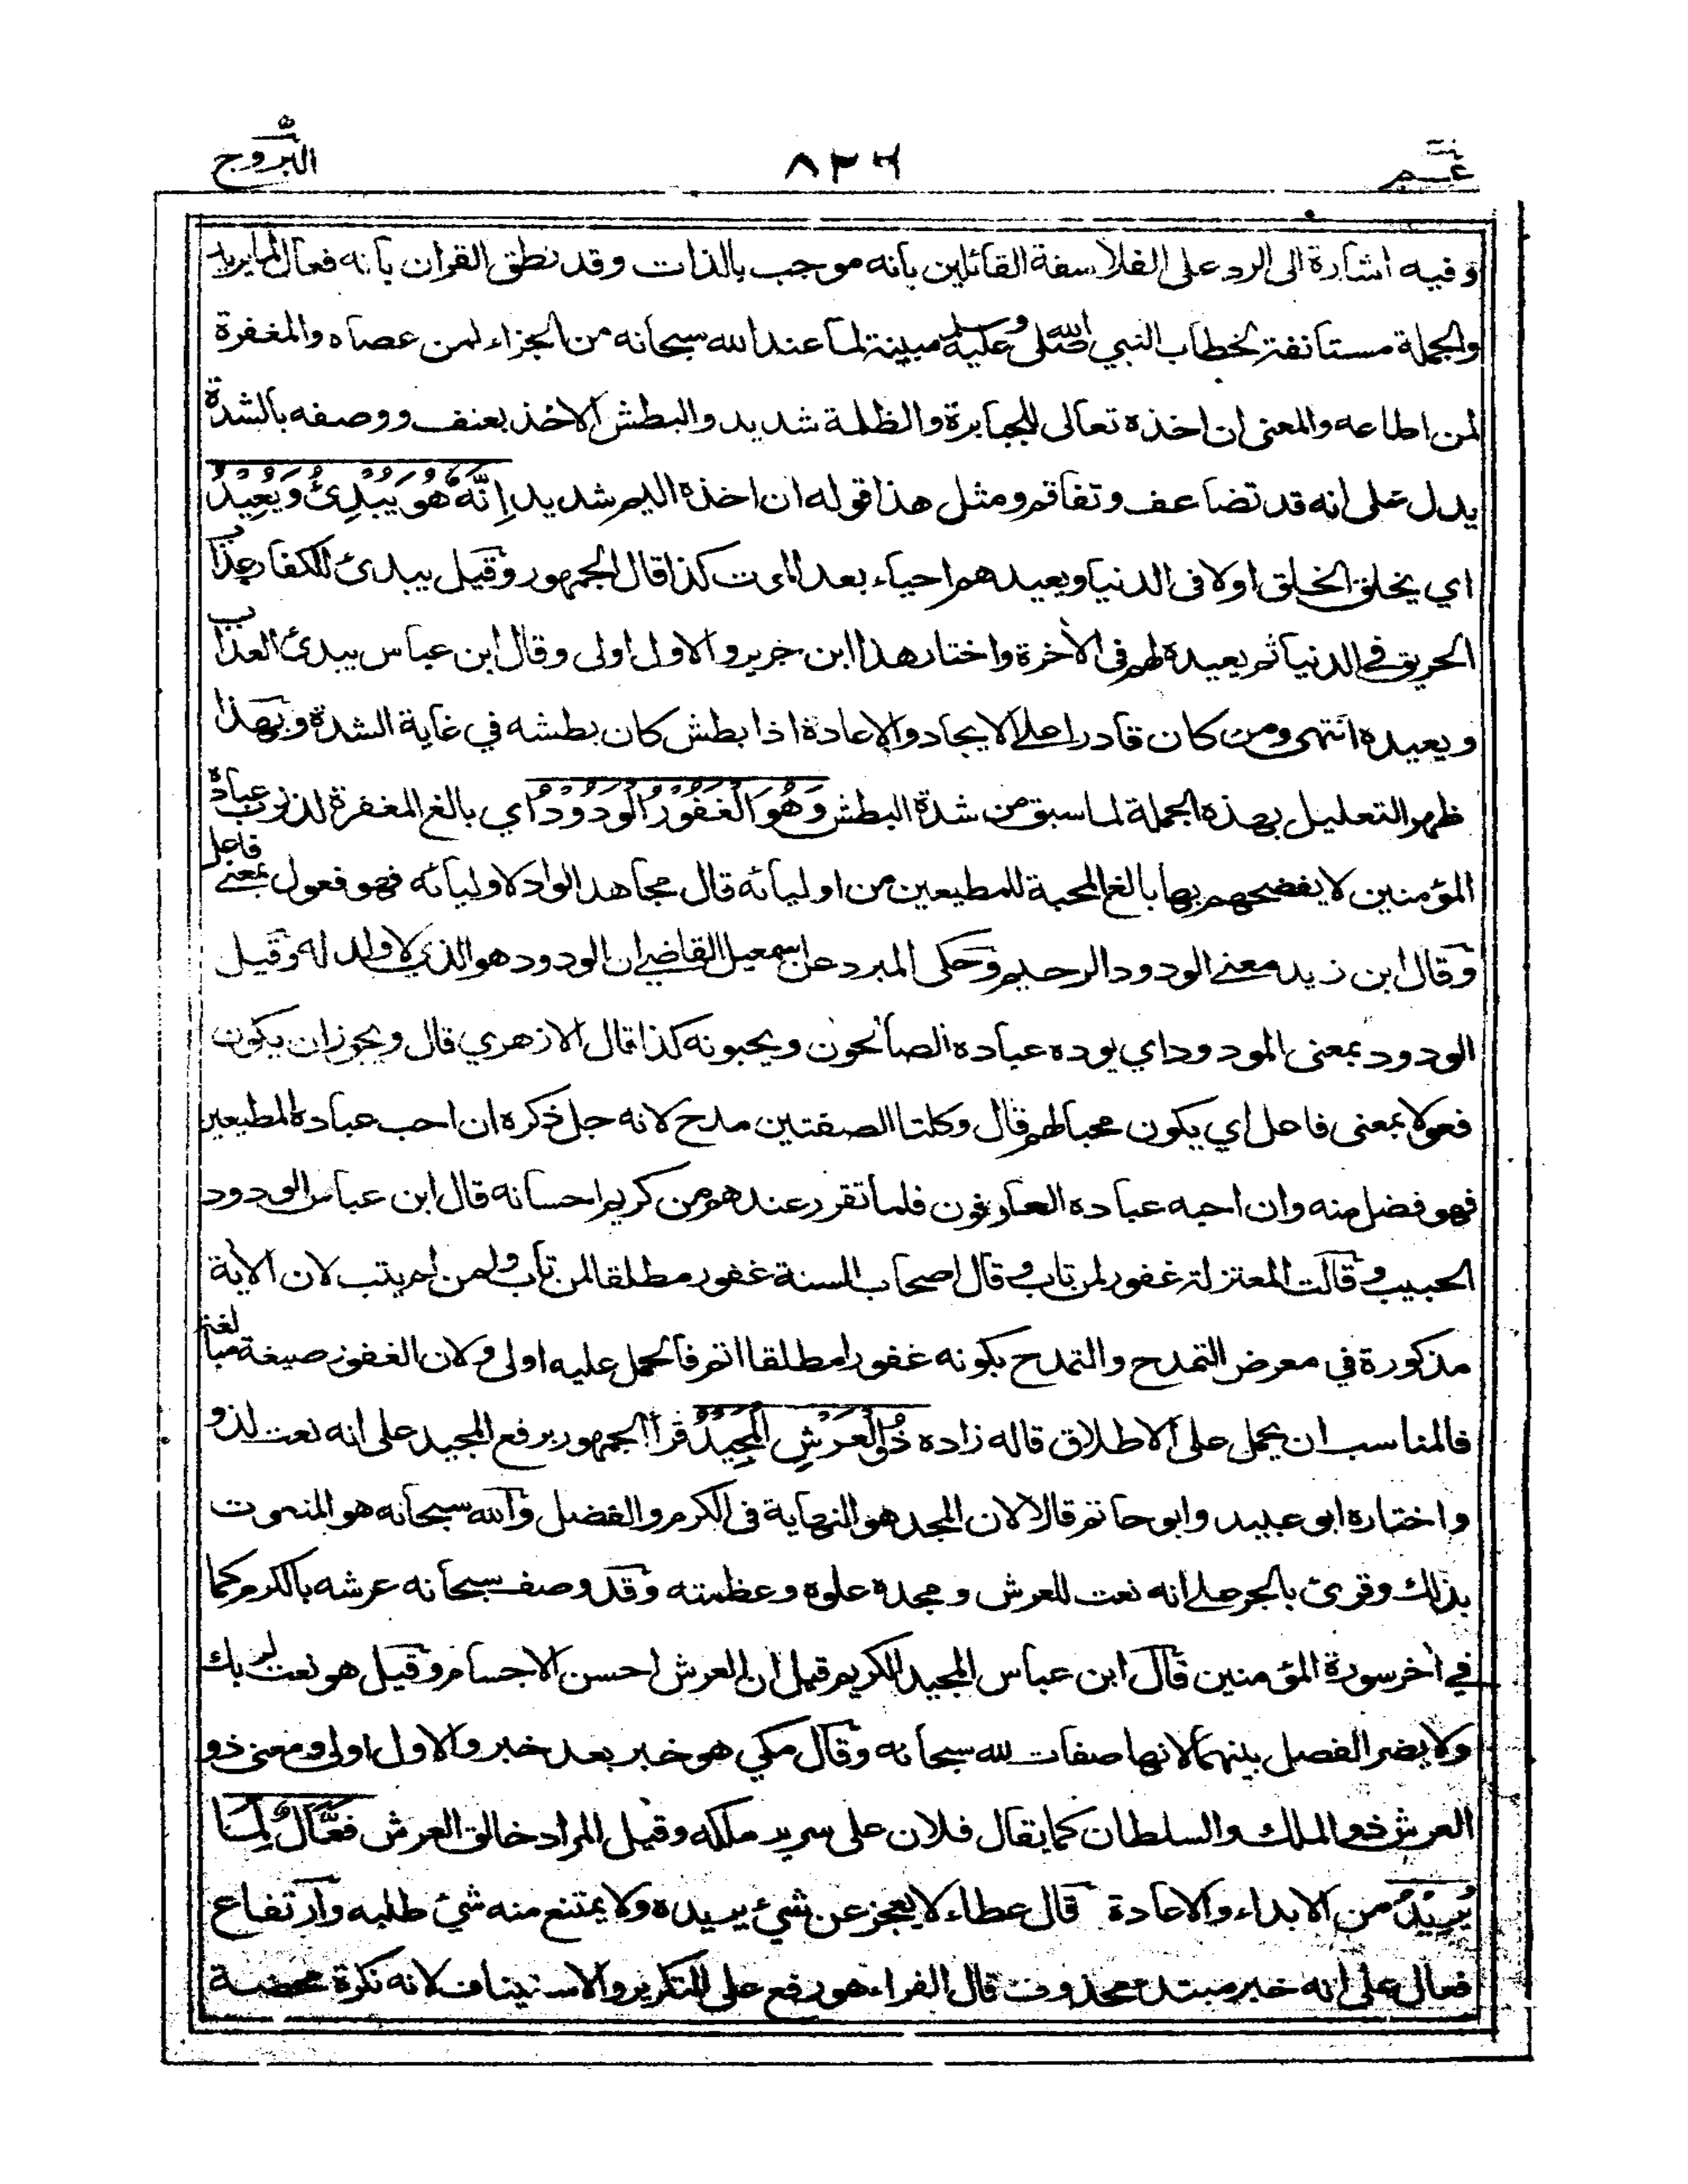 عـم
٨٣٦
البروج
وفيه اشارة الى الرد على الفلاسفة القائلين بانه موجب بالذات وقد نطق القران بانه فعال لما يريد
والجملة مستانفة لخطاب النبي صلى الله عليه وسلم مبينة لما عند الله سبحانه من الجزاء لمن عصاه والمغفرة
لمن اطاعه والمعنى ان اخذه تعالى للجبابرة والظلمة شديد والبطش الاخذ بعنف ووصفه بالشدة
يدل على انه قد تضاعف وتفاقم ومثل هذا قوله ان اخذه اليم شديد إِنَّهُ هُوَ يُبْدِئُ وَيُعِيْدُ
اي يخلق الخلق اولا فى الدنيا ويعيدهم احياء بعد الموت كذا قال الجمهور وقيل يبدئ للكفار عذاب
الحريق في الدنيا ثم يعيده لهم فى الأخرة واختار هذا ابن جرير والاول اولى وقال ابن عباس يبدئ العذاب
ويعيده انتهى ومن كان قادرا على الايجاد والاعادة اذا بطش كان بطشه في غاية الشدة وبهذا
ظهر التعليل بهذه الجملة لما سبق من شدة البطش وَهُوَ الْغَفُوْرُ الْوَدُوْدُ اي بالغ المغفرة لذنوب عباده
المؤمنين لا يفضحهم بها بالغ المحبة للمطيعين من اوليائه قال مجاهد الواد لاوليائه فهو فعول بمعنى فاعل
وقال ابن زيد معنى الودود الرحيم وحكى المبرد عن اسمعيل القاضي ان الودود هو الذي لا ولد له وقيل
الودود بمعنى المودود اي يوده عباده الصالحون ويحبونه كذا قال الازهري قال ويجوز ان يكون
فعولا بمعنى فاعل اي يكون محبا لهم قال وكلتا الصفتين مدح لانه جل ذكره ان احب عباده المطيعين
فهو فضل منه وان احبه عباده العارفون فلما تقرر عندهم من كريم احسانه قال ابن عباس الودود
الحبيب وقالت المعتزلة غفور لمن تاب وقال اصحاب السنة غفور مطلقا لمن تاب ولمن لم يتب لان الاية
مذكورة في معرض التمدح والتمدح بكونه غفورا مطلقا اتم فالحمل عليه اولى ولان الغفور صيغة مبالغة
فالمناسب ان يحمل على الاطلاق قاله زاده ذُو الْعَرْشِ الْمَجِيْدُ قرأ الجمهور برفع المجيد على انه نعت لذو
واختاره ابو عبيد وابو حاتم قالا لان المجد هو النهاية فى الكرم والفضل والله سبحانه هو المنعوت
بذلك وقرئ بالجر على انه نعت للعرش ومجده علوه وعظمته وقد وصف سبحانه عرشه بالكرم كما
في اخر سورة المؤمنين قال ابن عباس المجيد الكريم قيل ان العرش احسن الاجسام وقيل هو نعت لربك
ولا يضر الفصل بينهما لانها صفات لله سبحانه وقال مكي هو خبر بعد خبر والاول اولى ومعنى ذو
العرش ذو الملك والسلطان كما يقال فلان على سرير ملكه وقيل المراد خالق العرش فَعَّالٌ لِّمَا
يُرِيْدُ من الابداء والاعادة قال عطاء لا يعجز عن شئ يريده ولا يمتنع منه شئ طلبه وارتفاع
فعال على انه خبر مبتدء محذوف قال الفراء هو رفع على التكرير والاستيناف لانه نكرة محضة